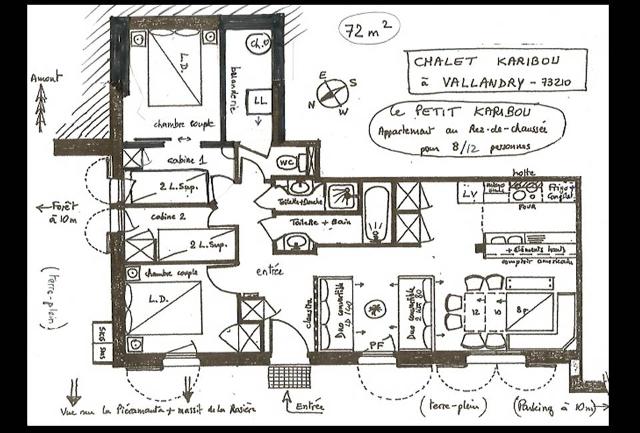 72 m²
CHALET KARIBOU
à VALLANDRY - 73210
le PETIT KARIBOU
Appartement au Rez-de-chaussée
pour 8/12 personnes
Amont
E
S
N
W
L.D.
chambre couple
buanderie
ch.O
LL
WC
cabine 1
2 L.Sup.
cabine 2
2 L.Sup.
Toilette+Douche
Toilette + Bain
entrée
chambre couple
L.D.
Forêt
à 10m
(terre-plein)
SKIS
hotte
LV
FOUR
Frigo +
+ éléments hauts
comptoir américain
Duo convertible
Duo convertible
PF
12
10
8p.
Vue sur la
+ massif de la Rosière
Entrée
(terre-plein)
(Parking à 10m)